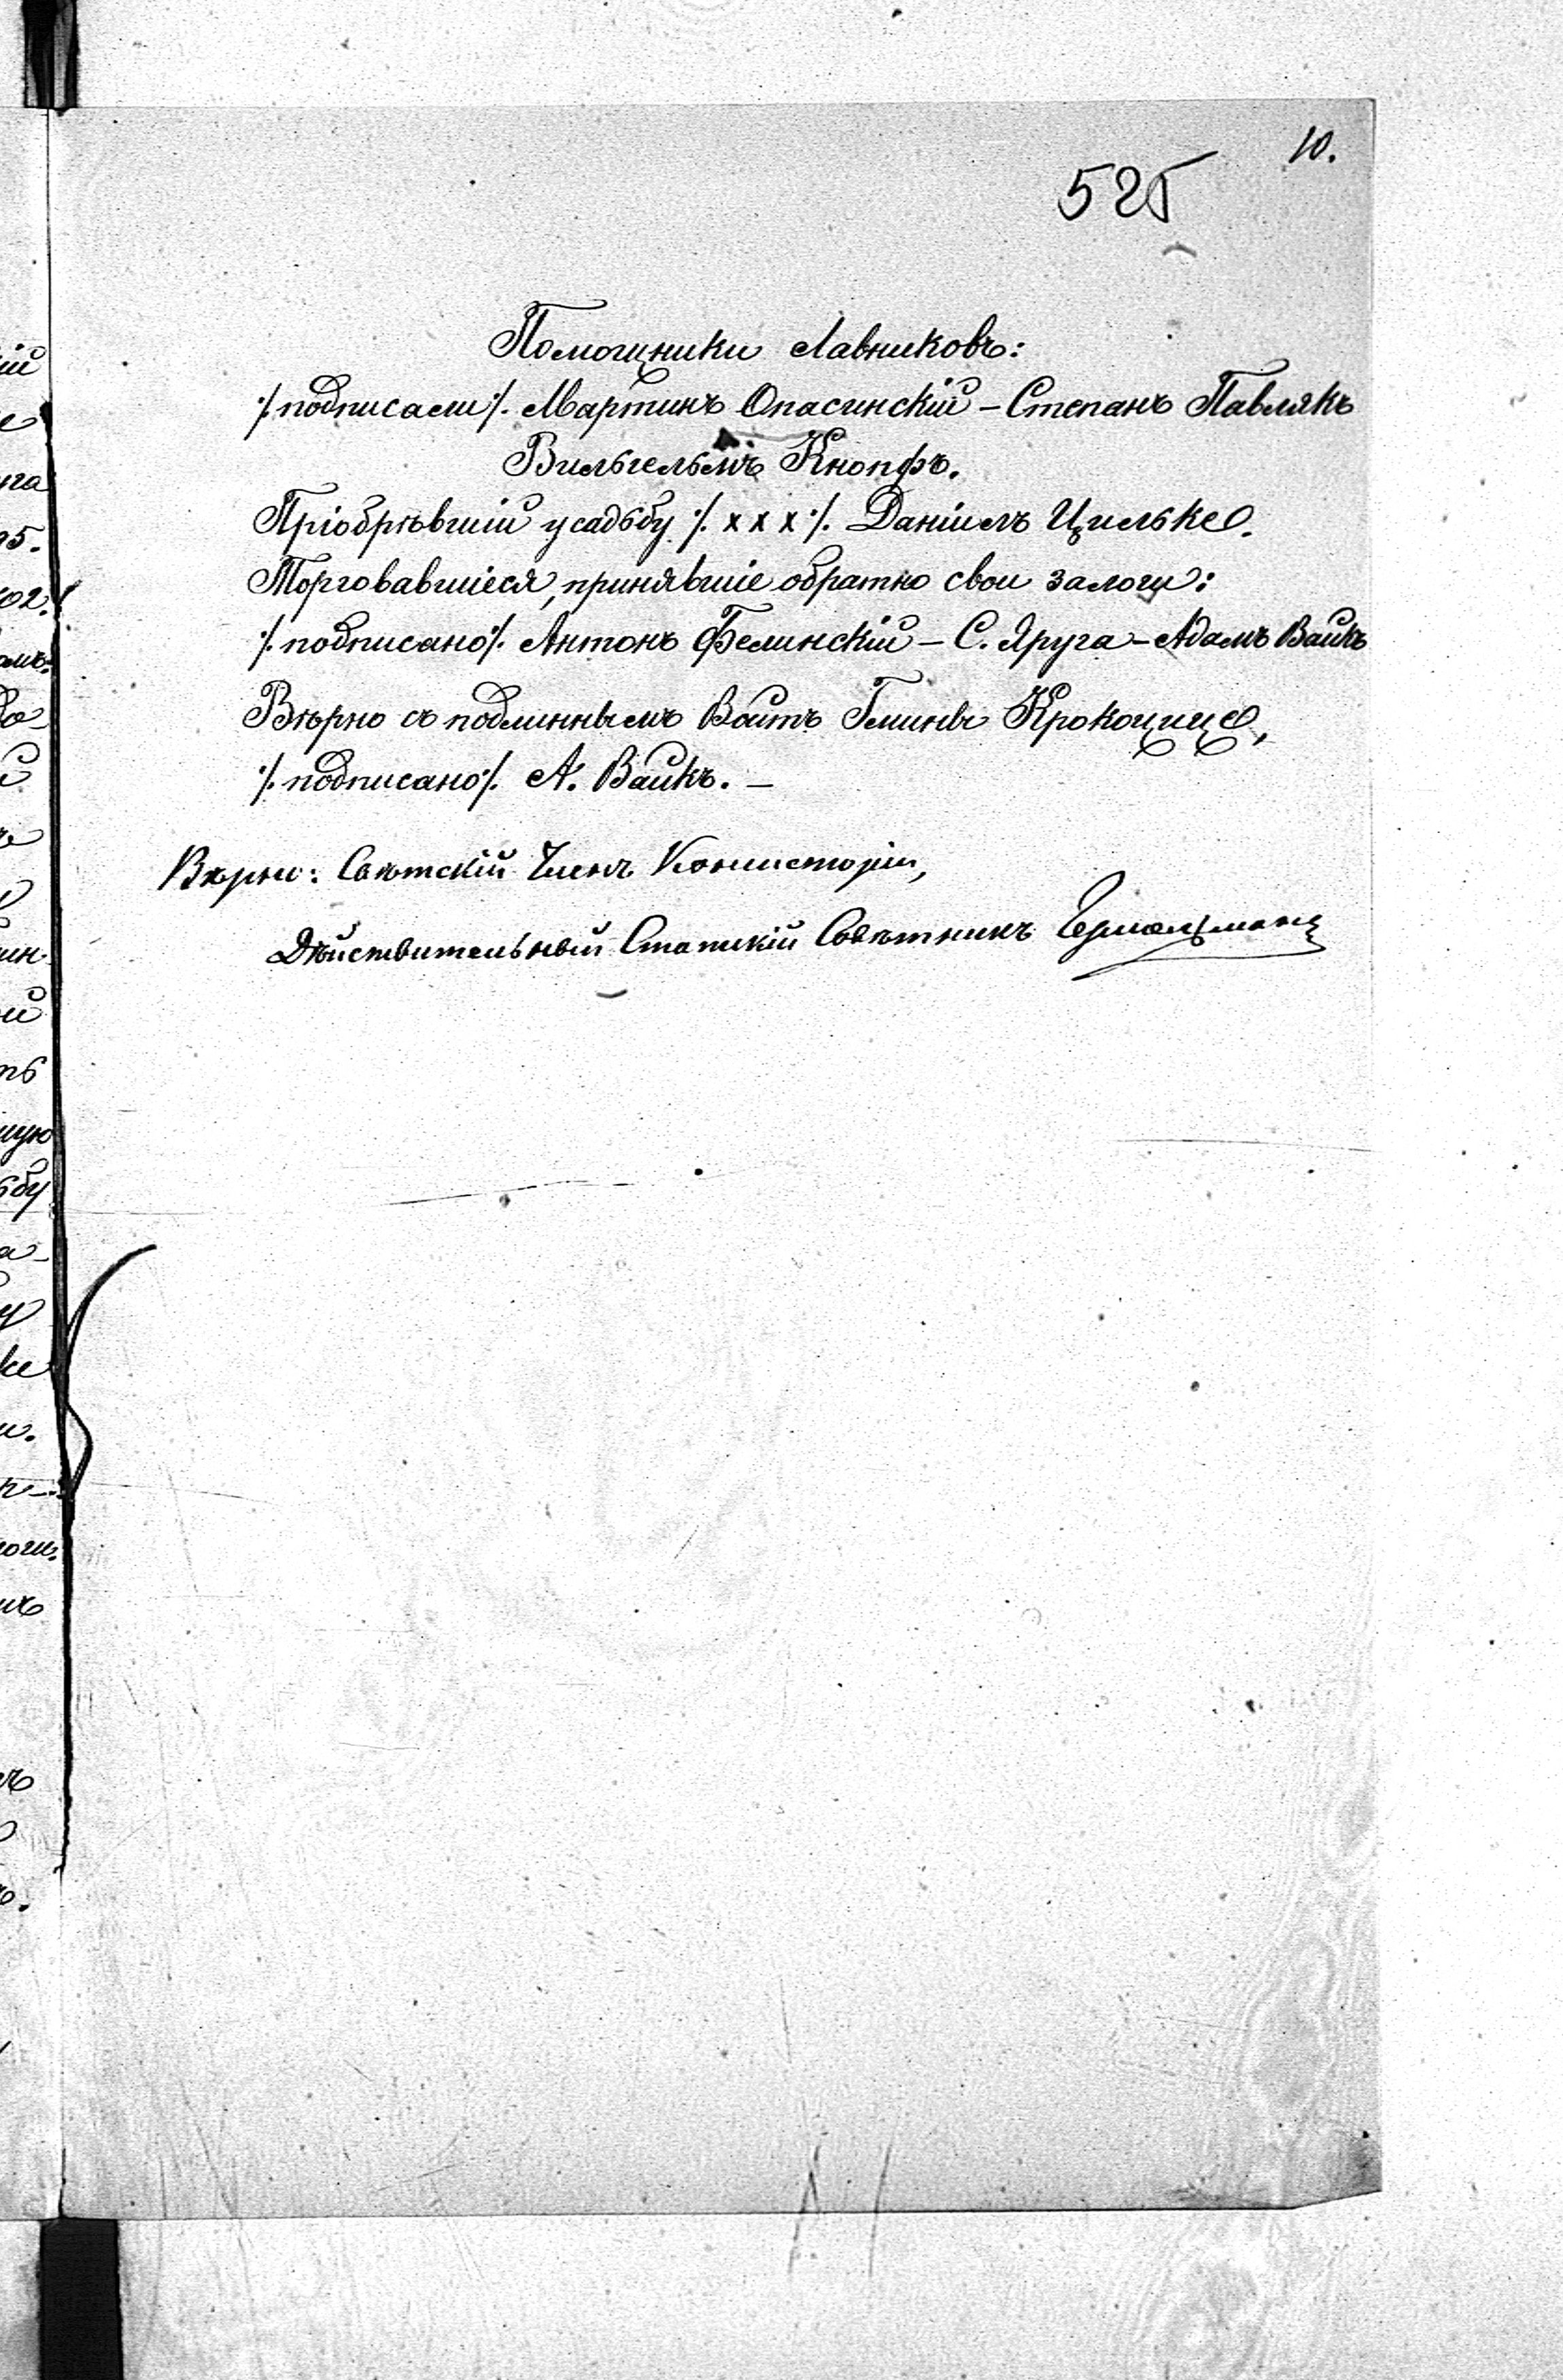 10.
525
Помощники Лавниковъ:
/подписали/. Мартинъ Опасинскій – Степанъ Павлякъ
Вильгельмъ Кнопфъ.
Пріобрѣвшій усадьбу /. х х х /. Даніилъ Цильке.
Торговавшіеся, принявшіе обратно свои залоги:
/. подписано /. Антонъ Фелинскій – С. Яруга – Адамъ Вайкъ
Вѣрно съ подлиннымъ Войтъ Гмины Крокоцице,
/. подписано /. А. Вайкъ. –
Вѣрно: Свѣтскій Членъ Консисторіи,
Дѣйствительный Статскій Совѣтникъ